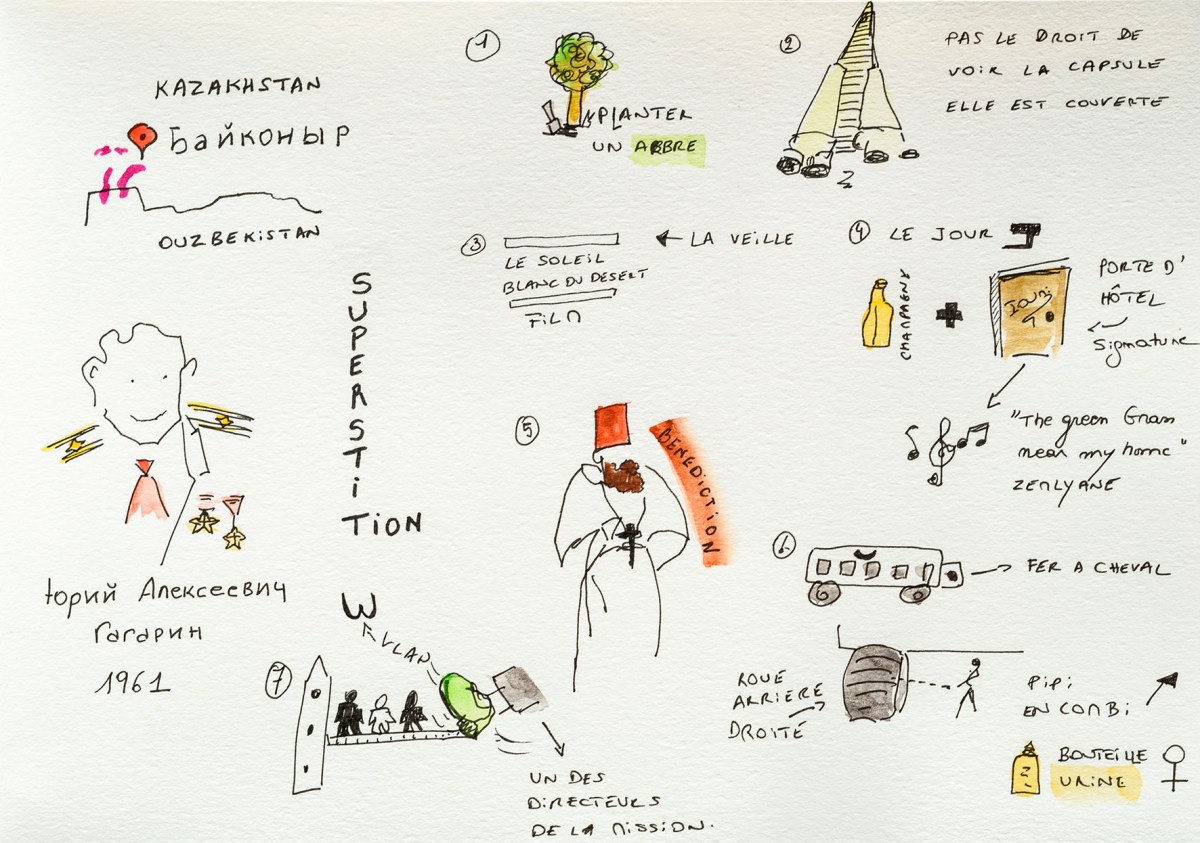 KAZAKHSTAN
Байконыр
OUZBEKISTAN
Юрий Алексеевич
Гагарин
1961
SUPERSTI
TION
1
PLANTER
UN ARBRE
2
PAS LE DROIT DE
VOIR LA CAPSULE
ELLE EST COUVERTE
3
LE SOLEIL
BLANC DU DESERT
FILM
LA VEILLE
4
LE JOUR J
CHAMPAGNE
+
PORTE D'
HÔTEL
Signature
"The green Grass
near my home"
ZEMLYANE
5
BENEDICTION
6
FER A CHEVAL
ROUE
ARRIERE
DROITE
PiPi
EN COMBI
BOUTEILLE
URINE
7
VLAN
UN DES
DIRECTEURS
DE LA MISSION.